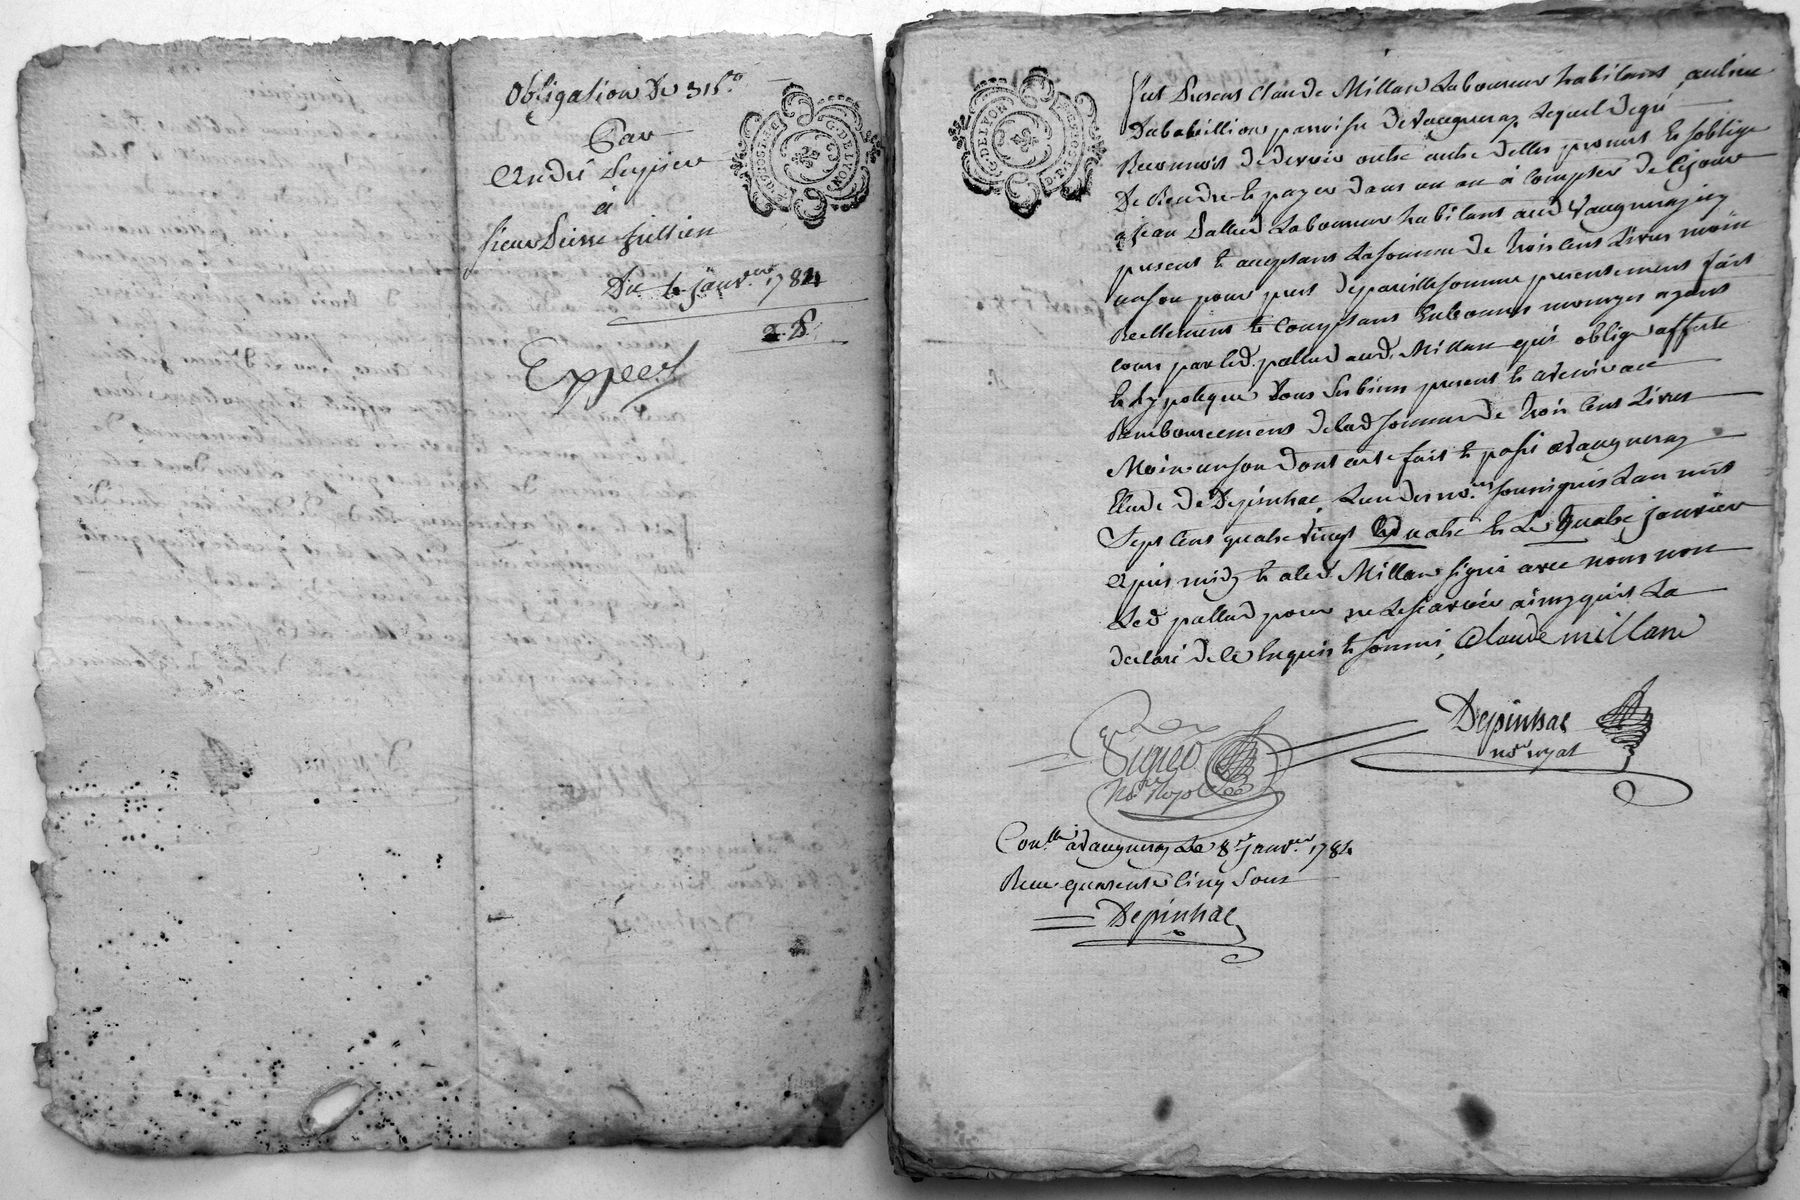 Obligation De 315.ᵗᵗ
Par
André
à
sieur Pierre Jullien
Du 6 janv.er 1784
Exped
G. DE LYON
G. DE LYON
fut Present Claude Millan Laboureur habitant au lieu
parroisse de Vaugneray Lequel de gré
Reconnoit de devoir outre autre dettes promet et s'oblige
De Rendre et payer dans un an à compter de ce jour
a jean Pallud Laboureur habitant aud Vaugneray icy
present et acceptant La somme de trois cent Livres moin
un sou pour pret de pareille somme presentement fait
Reellement et Comptant En bonnes monoyes ayant
cours par led. pallud aud. Millan qui oblige affecte
et hypoteque tous ses biens present et avenir au
Remboursement de lad somme de trois Cent Livres
Moin un sou dont acte fait et passé a Vaugneray
Etude de Depinhac, L'un des no.res soussignés L'an mil
Sept Cent quatre vingt quatre et Le quatre janvier
apres midy et a led. Millan signé avec nous non
Led pallud pour ne Le scavoir ainsy qu'il La
declaré de ce Enquis et sommé, Claude millan
Depinhac
no.re royal
no.re Royal
Con.lle à Vaugneray Le 8.e janv.er 1784
Recu quarente Cinq Sous
Depinhac